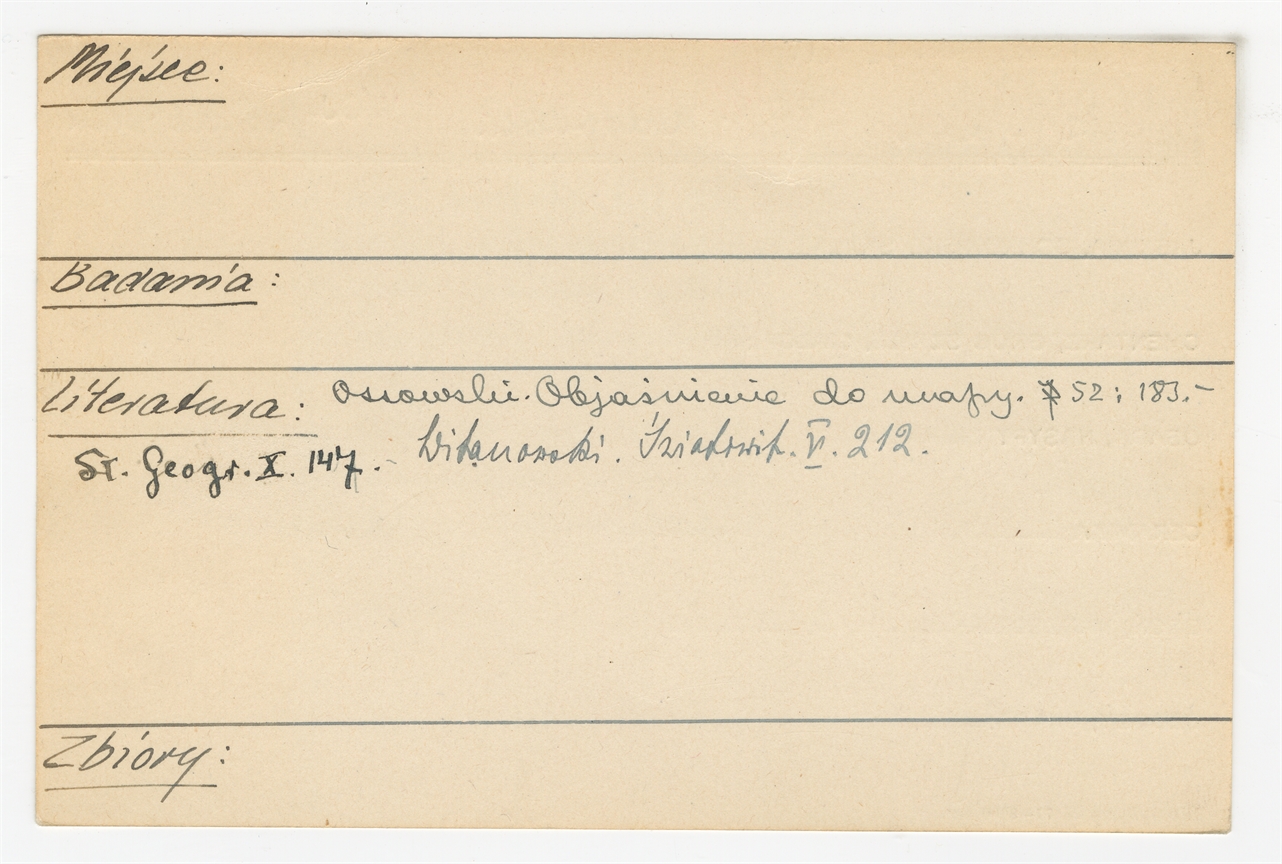 Miejsce:
Badania:
Literatura: Ossowski. Objaśnienie do mapy. 52; 183.-
Sł. Geogr. X. 147. - Witanowski. Światowit. VI. 212.
Zbiory: